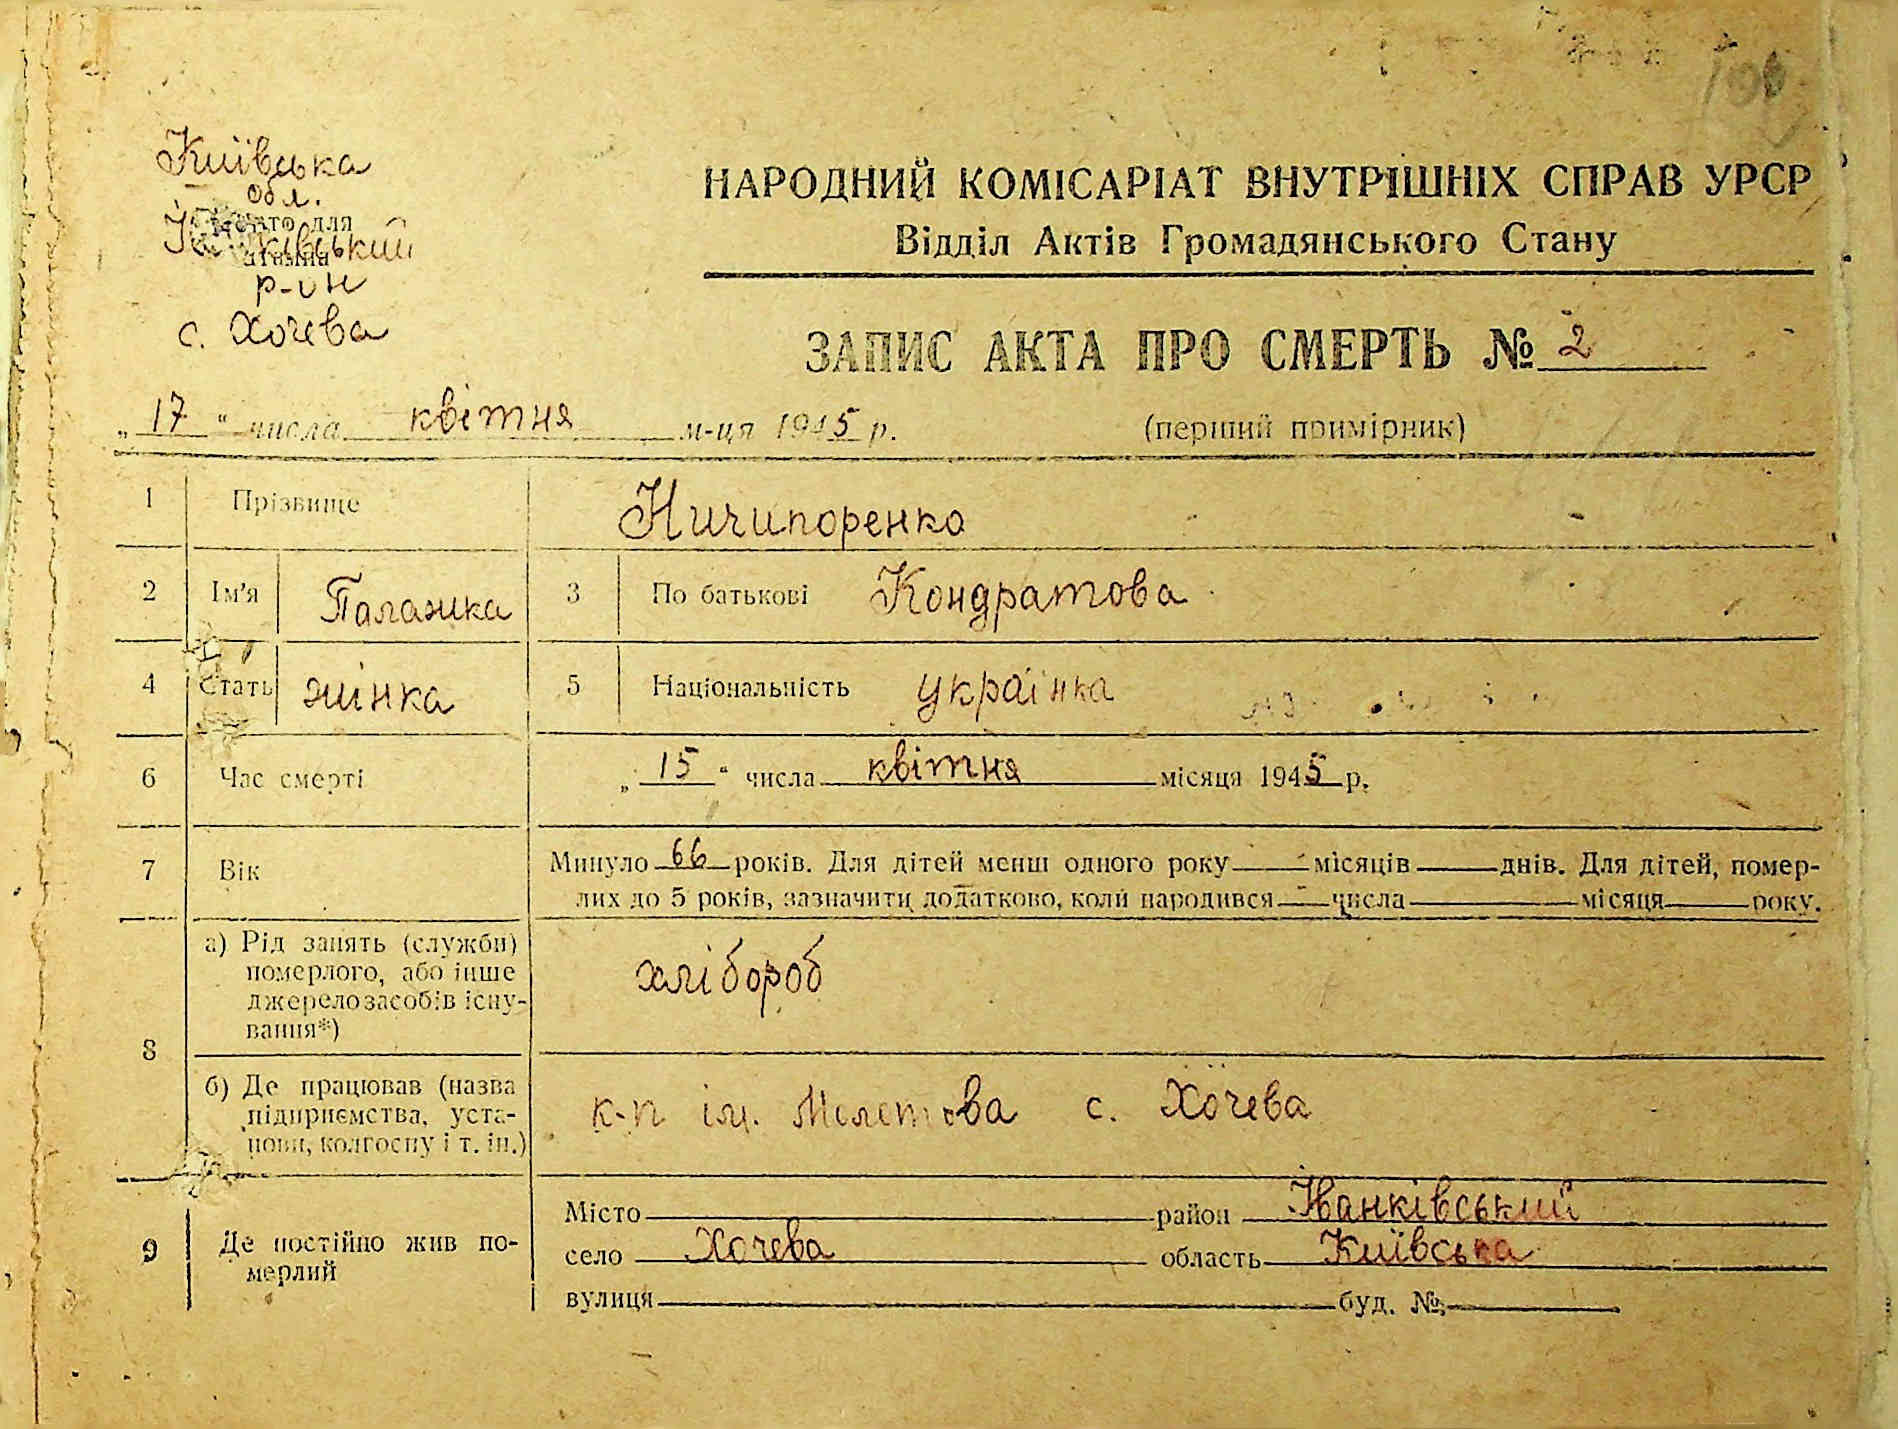 100
Київська
обл.
Місто для
Іванківський
штампа
р-он
с. Хочева
НАРОДНИЙ КОМІСАРІАТ ВНУТРІШНІХ СПРАВ УРСР
Відділ Актів Громадянського Стану
ЗАПИС АКТА ПРО СМЕРТЬ № 2
„17“ числа квітня м-ця 1945 р.
(перший примірник)
1 Прізвище Ничипоренко
2 Ім'я Палажка 3 По батькові Кондратова
4 Стать жінка 5 Національність українка
6 Час смерті „15“ числа квітня місяця 1945 р.
7 Вік Минуло 66 років. Для дітей менш одного року місяців днів. Для дітей, помер-
лих до 5 років, зазначити додатково, коли народився числа місяця року.
8 а) Рід занять (служби)
померлого, або інше
джерело засобів існу-
вання*)
хлібороб
б) Де працював (назва
підприємства, уста-
нови, колгоспу і т. ін.)
к-п ім. с. Хочева
9 Де постійно жив по-
мерлий
Місто район Іванківський
село Хочева область Київська
вулиця буд. №